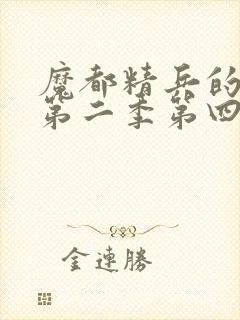 魔都精兵的
第二季第四
金連勝